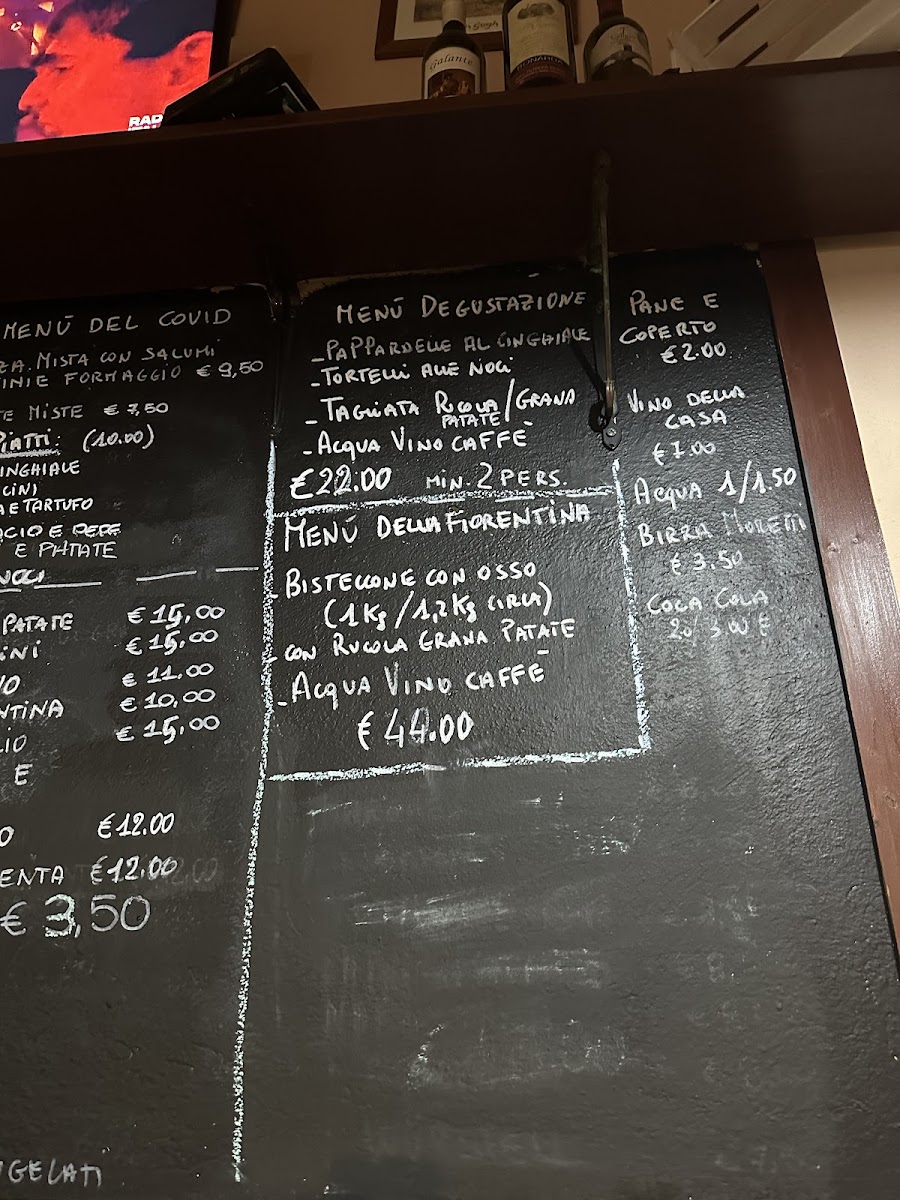 RAD
Galante
MENÚ DEL COVID
MISTA CON SALUMI
E FORMAGGIO € 9,50
MISTE € 7,50
PIATTI: (10.00)
CINGHIALE
CINI
A E TARTUFO
CACIO E PEPE
E PATATE
NOCI
PATATE € 15,00
INI € 15,00
O € 11.00
NTINA € 10,00
LIO € 15,00
E
O € 12.00
ENTA € 12.00
€ 3,50
GELATI
MENÚ DEGUSTAZIONE
- PAPPARDELLE AL CINGHIALE
- TORTELLI ALLE NOCI
- TAGLIATA RUCOLA/GRANA
PATATE
- ACQUA VINO CAFFÈ
€ 22.00 MIN. 2 PERS.
MENÚ DELLA FIORENTINA
- BISTECCONE CON OSSO
(1Kg/1,2Kg CIRCA)
- CON RUCOLA GRANA PATATE
- ACQUA VINO CAFFÈ
€ 44.00
PANE E
COPERTO
€ 2.00
VINO DELLA
CASA
€ 7.00
ACQUA 1/1.50
BIRRA MORETTI
€ 3.50
COCA COLA
3.00 €